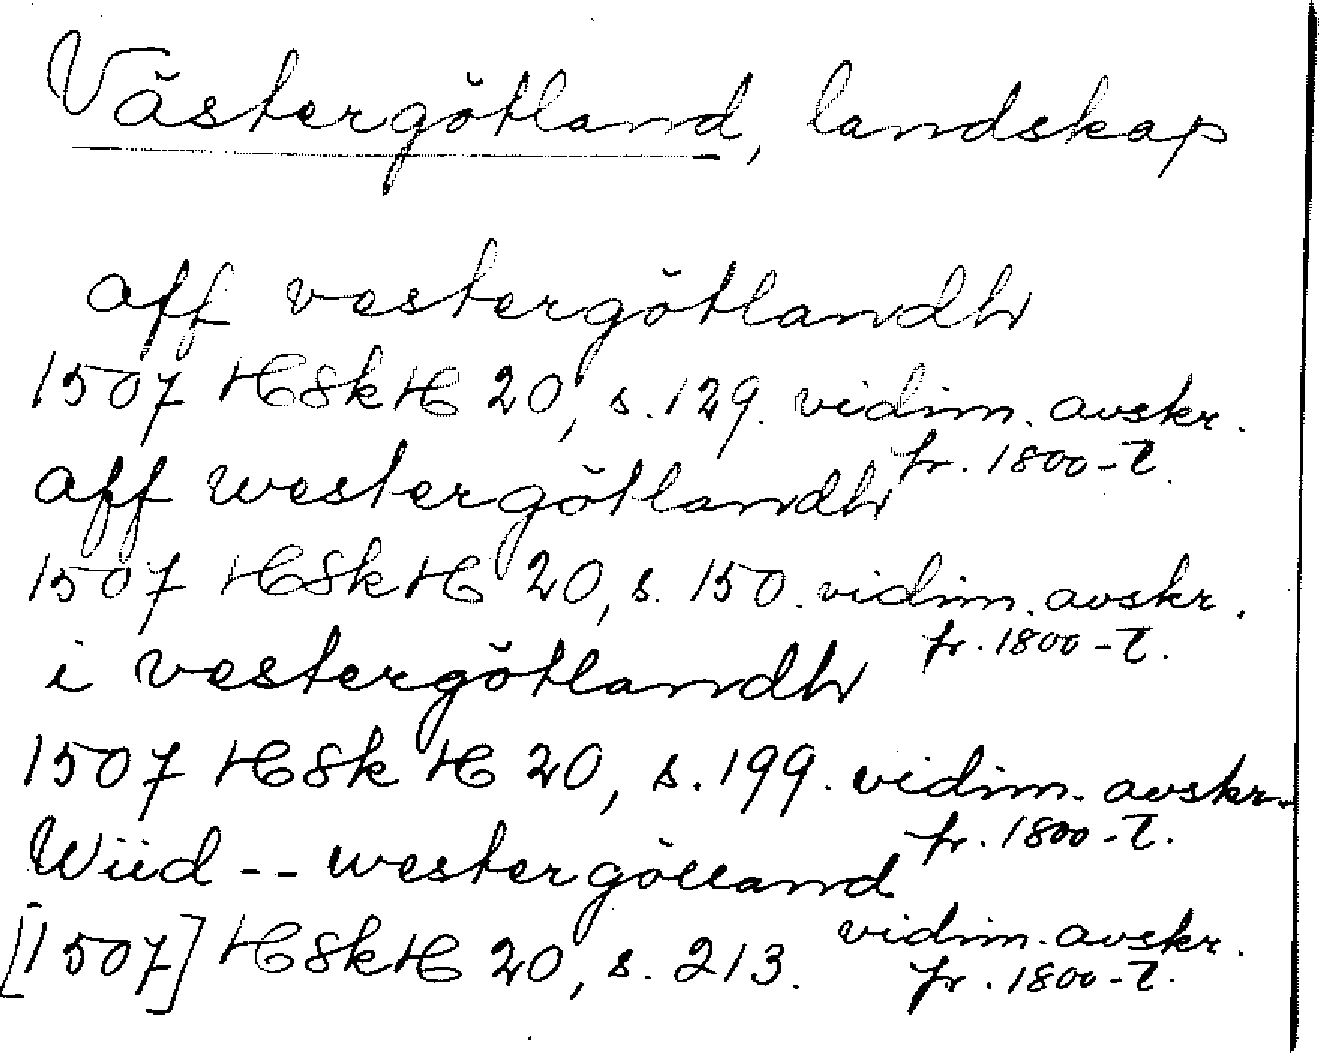 Västergötland, landskap
aff vestergötlandh
1507 HSkH 20, s. 129. vidim. avskr.
fr. 1800-t.
aff westergötlandh
1507 HSkH 20, s. 150. vidim. avskr.
fr. 1800-t.
i vestergötlandh
1507 HSkH 20, s. 199. vidim. avskr.
fr. 1800-t.
Wiid -- westergölland
[1507] HSkH 20, s. 213. vidim. avskr.
fr. 1800-t.